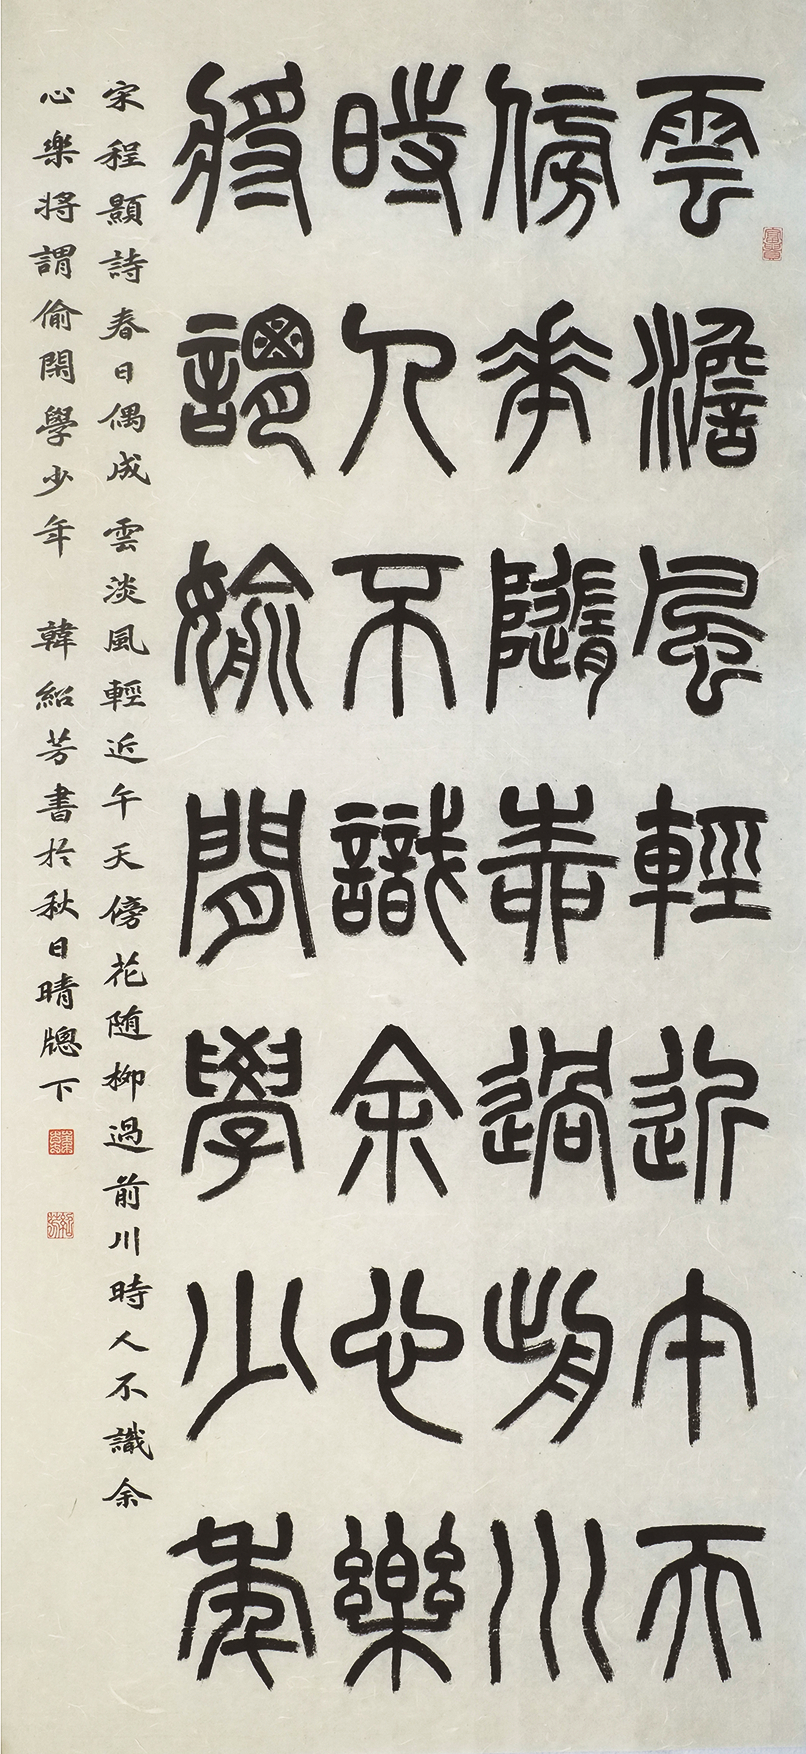 雲澹風輕近午天
傍華隨柳過前川
時人不識余心樂
將謂媮閒學少年
宋程顥詩春日偶成 雲淡風輕近午天傍花随柳過前川時人不識余
心樂将謂偷閑學少年 韓紹芳書於秋日晴牕下